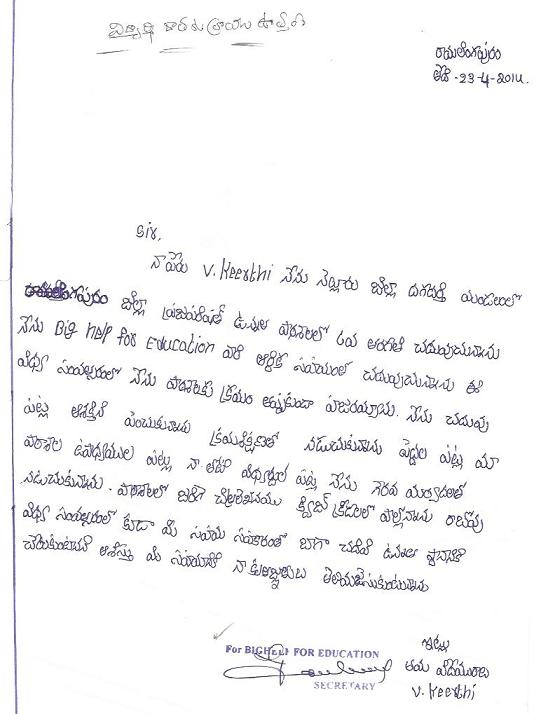 విద్యార్థి వ్రాయు ఉత్తరం
రామలింగపురం
తేది -23-4-2014.
Sir,
నా పేరు V. Keerthi నేను నెల్లూరు జిల్లా దగదర్తి మండలంలో
రామలింగపురం జిల్లా ప్రజాపరిషత్ ఉన్నత పాఠశాలలో 6వ తరగతి చదువుచున్నాను
నేను Big Help for Education వారి ఆర్థిక సహాయంతో చదువుచున్నాను ఈ
విద్యా సంవత్సరంలో నేను పాఠశాలకు క్రమం తప్పకుండా హాజరయ్యాను. నేను చదువు
పట్ల ఆసక్తిని పెంచుకున్నాను క్రమశిక్షణతో నడుచుకున్నాను పెద్దల పట్ల మా
పాఠశాల ఉపాధ్యాయుల పట్ల నా తోటి విద్యార్థుల పట్ల నేను గౌరవ మర్యాదలతో
నడుచుకున్నాను. పాఠశాలలో జరిగే క్విజ్ క్రీడలలో పాల్గొన్నాను రాబోవు
విద్యా సంవత్సరంలో కూడా మీ సహాయ సహకారంతో బాగా చదివి ఉన్నత స్థానానికి
చేరుకుంటానని ఆశిస్తూ మీ సహాయానికి నా కృతజ్ఞతలు తెలియజేసుకుంటున్నాను
ఇట్లు
తమ విధేయురాలు
V. Keerthi
For BIGHELP FOR EDUCATION
SECRETARY